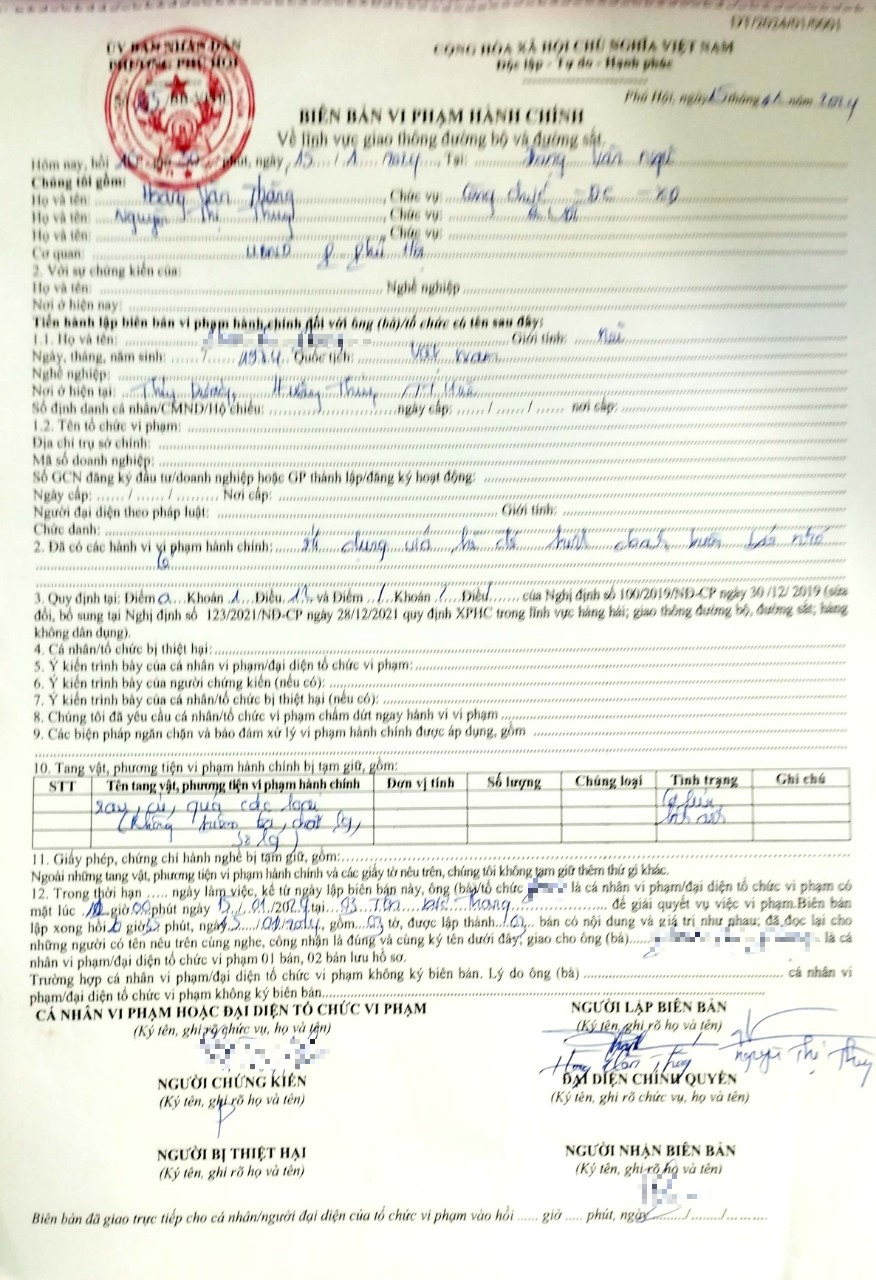 ỦY BAN NHÂN DÂN
PHƯỜNG PHÚ HỘI
CỘNG HÒA XÃ HỘI CHỦ NGHĨA VIỆT NAM
Độc lập - Tự do - Hạnh phúc
Phú Hội, ngày 15 tháng 01 năm 2024
BIÊN BẢN VI PHẠM HÀNH CHÍNH
Về lĩnh vực giao thông đường bộ và đường sắt
Hôm nay, hồi phút, ngày 15 / 1 / 2024 Tại: Văn Ngữ
Chúng tôi gồm:
Họ và tên: Hoàng Văn Thắng Chức vụ: Công chức - ĐC - XD
Họ và tên: Nguyễn Thị Thủy Chức vụ:
Họ và tên: Chức vụ:
Cơ quan: UBND P Phú Hội
2. Với sự chứng kiến của:
Họ và tên: Nghề nghiệp
Nơi ở hiện nay:
Tiến hành lập biên bản vi phạm hành chính đối với ông (bà)/tổ chức có tên sau đây:
1.1. Họ và tên: Giới tính:
Ngày, tháng, năm sinh: 1974 Quốc tịch: Việt Nam
Nghề nghiệp:
Nơi ở hiện tại: Thủy Dương, Hương Thủy, TT Huế
Số định danh cá nhân/CMND/Hộ chiếu: ngày cấp: ...... / ...... / ...... nơi cấp:
1.2. Tên tổ chức vi phạm:
Địa chỉ trụ sở chính:
Mã số doanh nghiệp:
Số GCN đăng ký đầu tư/doanh nghiệp hoặc GP thành lập/đăng ký hoạt động:
Ngày cấp: ...... / ...... / ........ Nơi cấp:
Người đại diện theo pháp luật: Giới tính:
Chức danh:
2. Đã có các hành vi vi phạm hành chính: sử dụng vỉa hè để kinh doanh buôn bán nhỏ
lẻ
3. Quy định tại: Điểm a Khoản 1 Điều 12 và Điểm / Khoản / Điều của Nghị định số 100/2019/NĐ-CP ngày 30/12/2019 (sửa
đổi, bổ sung tại Nghị định số 123/2021/NĐ-CP ngày 28/12/2021 quy định XPHC trong lĩnh vực hàng hải; giao thông đường bộ, đường sắt; hàng
không dân dụng).
4. Cá nhân/tổ chức bị thiệt hại:
5. Ý kiến trình bày của cá nhân vi phạm/đại diện tổ chức vi phạm:
6. Ý kiến trình bày của người chứng kiến (nếu có):
7. Ý kiến trình bày của cá nhân/tổ chức bị thiệt hại (nếu có):
8. Chúng tôi đã yêu cầu cá nhân/tổ chức vi phạm chấm dứt ngay hành vi vi phạm
9. Các biện pháp ngăn chặn và bảo đảm xử lý vi phạm hành chính được áp dụng, gồm
10. Tang vật, phương tiện vi phạm hành chính bị tạm giữ, gồm:
STT Tên tang vật, phương tiện vi phạm hành chính Đơn vị tính Số lượng Chủng loại Tình trạng Ghi chú
rau, củ, quả các loại
(không kiểm tra chất lg,
số lg)
11. Giấy phép, chứng chỉ hành nghề bị tạm giữ, gồm:
Ngoài những tang vật, phương tiện vi phạm hành chính và các giấy tờ nêu trên, chúng tôi không tạm giữ thêm thứ gì khác.
12. Trong thời hạn ..... ngày làm việc, kể từ ngày lập biên bản này, ông (bà)/tổ chức là cá nhân vi phạm/đại diện tổ chức vi phạm có
mặt lúc giờ 00 phút ngày 15 / 01 / 2024 tại 93 Tôn Đức Thắng để giải quyết vụ việc vi phạm.Biên bản
lập xong hồi giờ phút, ngày 15 / 01 / 2024, gồm 02 tờ, được lập thành 02 bản có nội dung và giá trị như nhau; đã đọc lại cho
những người có tên nêu trên cùng nghe, công nhận là đúng và cùng ký tên dưới đây; giao cho ông (bà) là cá
nhân vi phạm/đại diện tổ chức vi phạm 01 bản, 02 bản lưu hồ sơ.
Trường hợp cá nhân vi phạm/đại diện tổ chức vi phạm không ký biên bản. Lý do ông (bà) cá nhân vi
phạm/đại diện tổ chức vi phạm không ký biên bản
CÁ NHÂN VI PHẠM HOẶC ĐẠI DIỆN TỔ CHỨC VI PHẠM
(Ký tên, ghi rõ chức vụ, họ và tên)
NGƯỜI LẬP BIÊN BẢN
(Ký tên, ghi rõ họ và tên)
Nguyễn Thị Thủy
NGƯỜI CHỨNG KIẾN
(Ký tên, ghi rõ họ và tên)
ĐẠI DIỆN CHÍNH QUYỀN
(Ký tên, ghi rõ chức vụ, họ và tên)
NGƯỜI BỊ THIỆT HẠI
(Ký tên, ghi rõ họ và tên)
NGƯỜI NHẬN BIÊN BẢN
(Ký tên, ghi rõ họ và tên)
Biên bản đã giao trực tiếp cho cá nhân/người đại diện của tổ chức vi phạm vào hồi ...... giờ ..... phút, ngày ......../......../..........